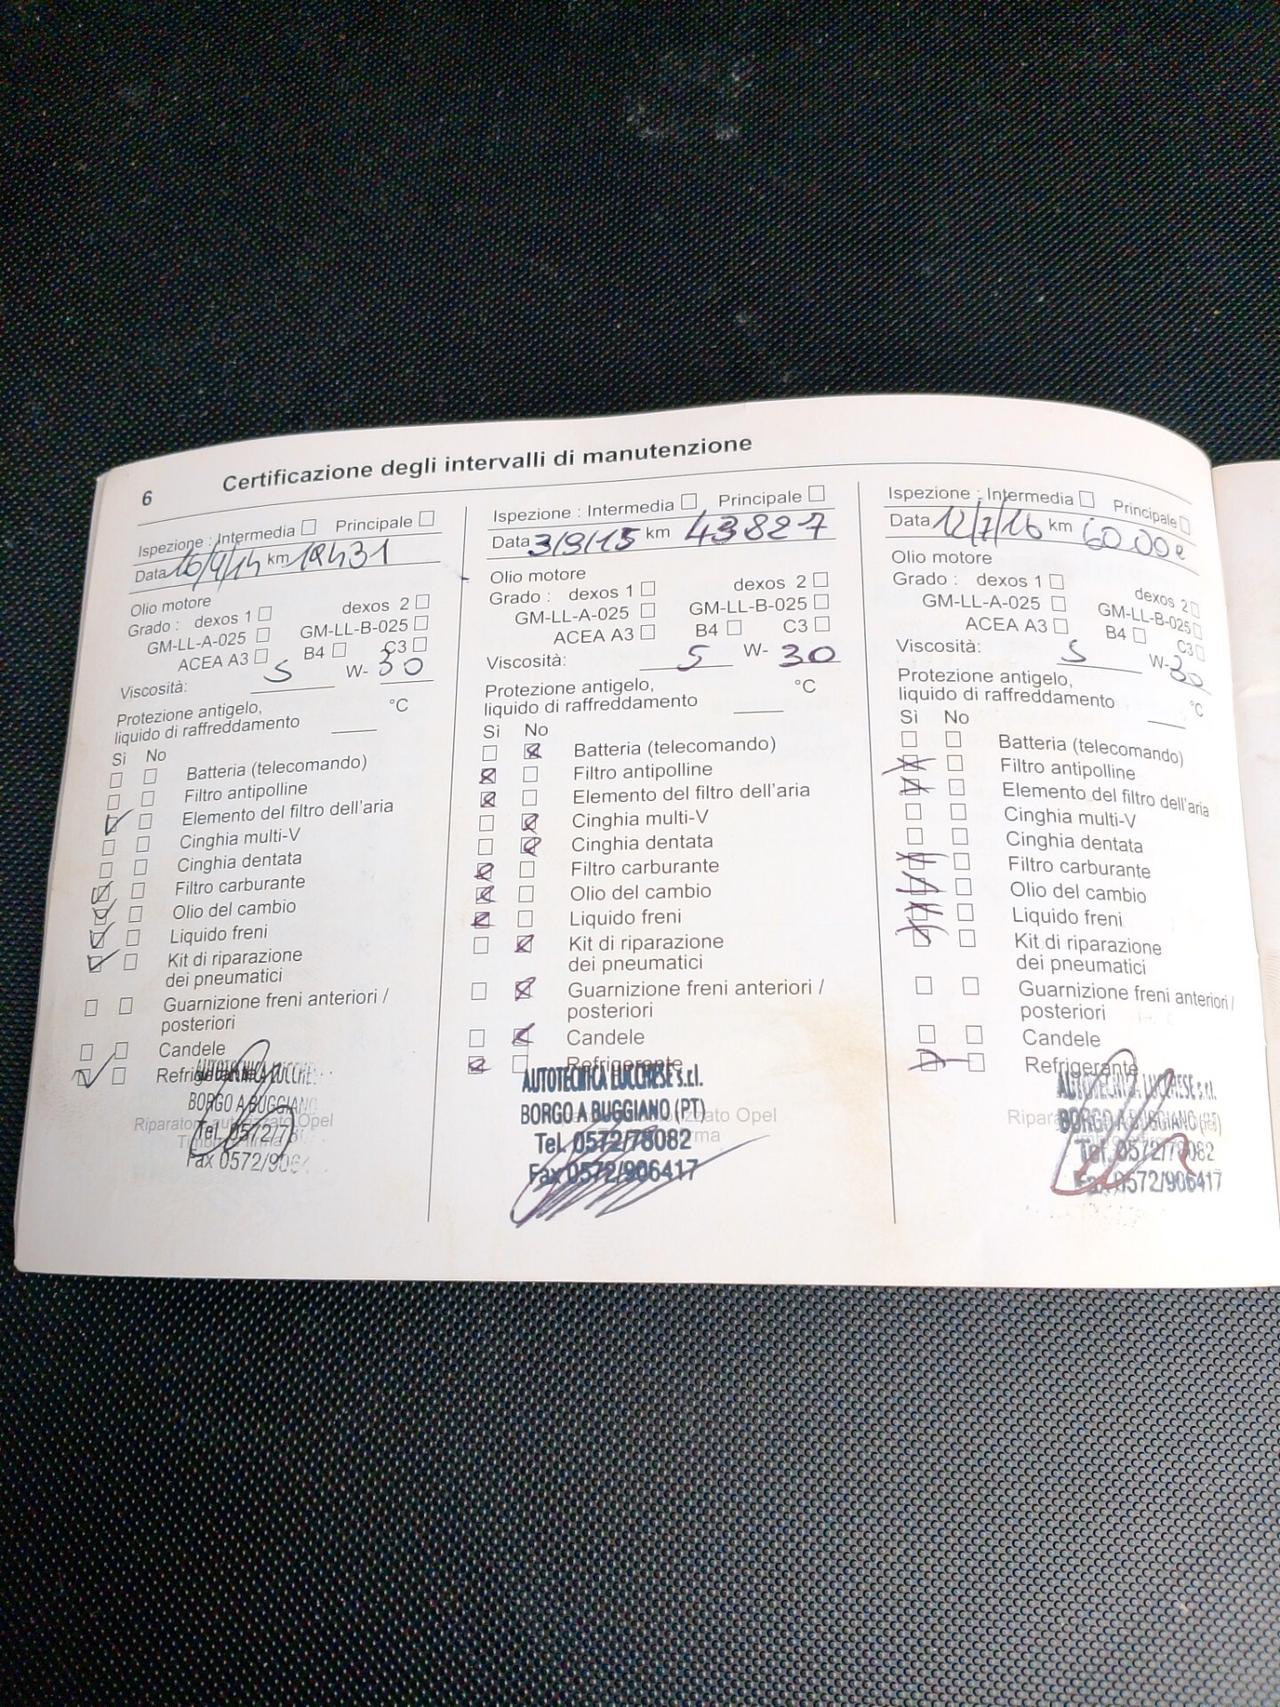 6 Certificazione degli intervalli di manutenzione
Ispezione : Intermedia Principale
Data 16/4/14 km
Olio motore
Grado : dexos 1 dexos 2
GM-LL-A-025 GM-LL-B-025
ACEA A3 B4 C3
Viscosità: 5 W- 30
Protezione antigelo, °C
liquido di raffreddamento
Sì No
Batteria (telecomando)
Filtro antipolline
Elemento del filtro dell'aria
Cinghia multi-V
Cinghia dentata
Filtro carburante
Olio del cambio
Liquido freni
Kit di riparazione
dei pneumatici
Guarnizione freni anteriori /
posteriori
Candele
Refrigerante
BORGO A BUGGIANO
Tel. 0572/7
Fax 0572/906
Ispezione : Intermedia Principale
Data 3/9/15 km 43827
Olio motore
Grado : dexos 1 dexos 2
GM-LL-A-025 GM-LL-B-025
ACEA A3 B4 C3
Viscosità: 5 W- 30
Protezione antigelo, °C
liquido di raffreddamento
Sì No
Batteria (telecomando)
Filtro antipolline
Elemento del filtro dell'aria
Cinghia multi-V
Cinghia dentata
Filtro carburante
Olio del cambio
Liquido freni
Kit di riparazione
dei pneumatici
Guarnizione freni anteriori /
posteriori
Candele
Refrigerante
AUTOTECNICA LUCCHESE s.r.l.
BORGO A BUGGIANO (PT)
Tel. 0572/78082
Fax 0572/906417
Ispezione : Intermedia Principale
Data 12/7/16 km
Olio motore
Grado : dexos 1 dexos 2
GM-LL-A-025 GM-LL-B-025
ACEA A3 B4 C3
Viscosità: 5 W- 30
Protezione antigelo, °C
liquido di raffreddamento
Sì No
Batteria (telecomando)
Filtro antipolline
Elemento del filtro dell'aria
Cinghia multi-V
Cinghia dentata
Filtro carburante
Olio del cambio
Liquido freni
Kit di riparazione
dei pneumatici
Guarnizione freni anteriori /
posteriori
Candele
Refrigerante
AUTOTECNICA LUCCHESE s.r.l.
BORGO A BUGGIANO (PT)
Tel. 0572/78082
Fax 0572/906417